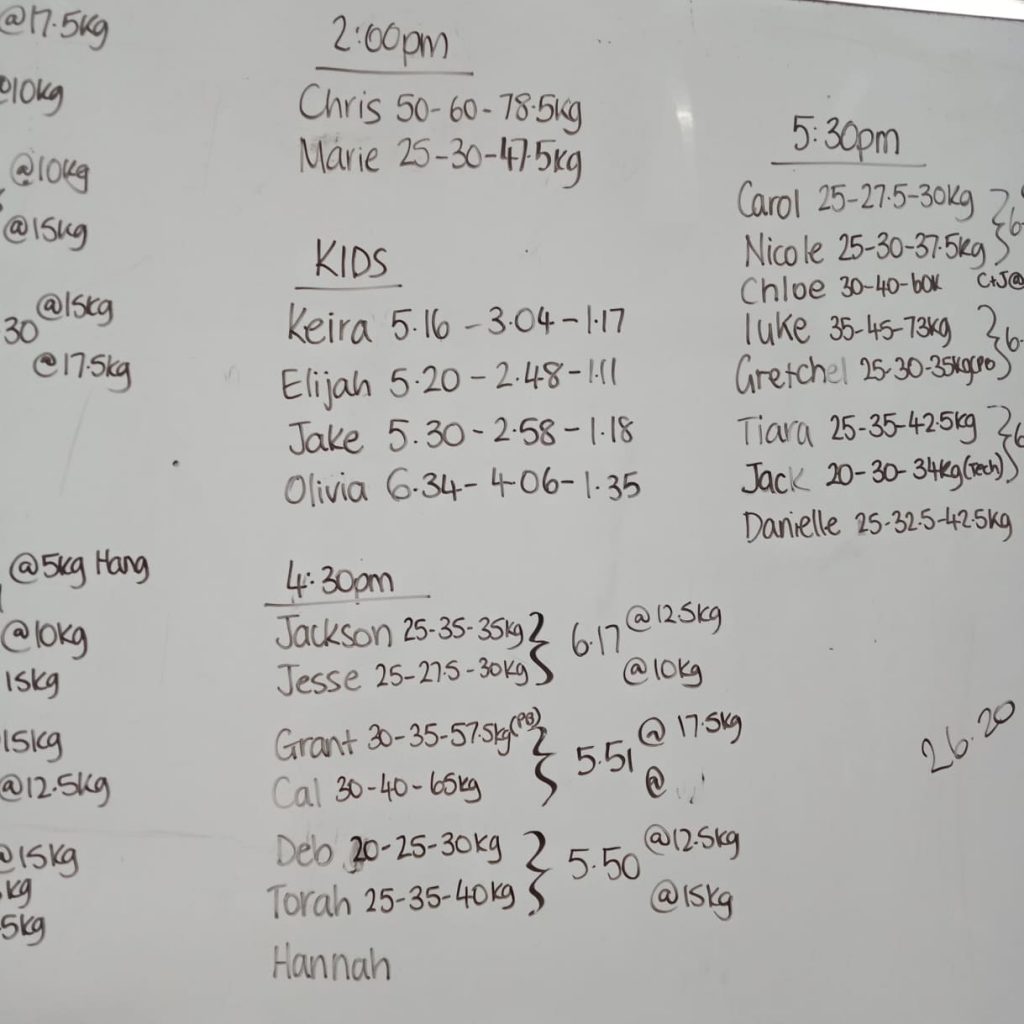 @17.5kg
@10kg
@10kg
@15kg
@15kg
30
@17.5kg
@5kg Hang
@10kg
15kg
15kg
@12.5kg
@15kg
kg
5kg
2:00pm
Chris 50-60-78.5kg
Marie 25-30-47.5kg
KIDS
Keira 5.16 - 3.04 - 1.17
Elijah 5.20 - 2.48 - 1.11
Jake 5.30 - 2.58 - 1.18
Olivia 6.34 - 4.06 - 1.35
4:30pm
Jackson 25-35-35kg } 6.17 @12.5kg
Jesse 25-27.5-30kg @10kg
Grant 30-35-57.5kg(PB) } 5.51 @ 17.5kg
Cal 30-40-65kg @
Deb 20-25-30kg } 5.50 @12.5kg
Torah 25-35-40kg @15kg
Hannah
5:30pm
Carol 25-27.5-30kg } 6
Nicole 25-30-37.5kg
Chloe 30-40-60K C+J@
luke 35-45-73kg } 6.
Gretchel 25-30-35kg(PB)
Tiara 25-35-42.5kg } 6
Jack 20-30-34kg(Tech)
Danielle 25-32.5-42.5kg
26.20